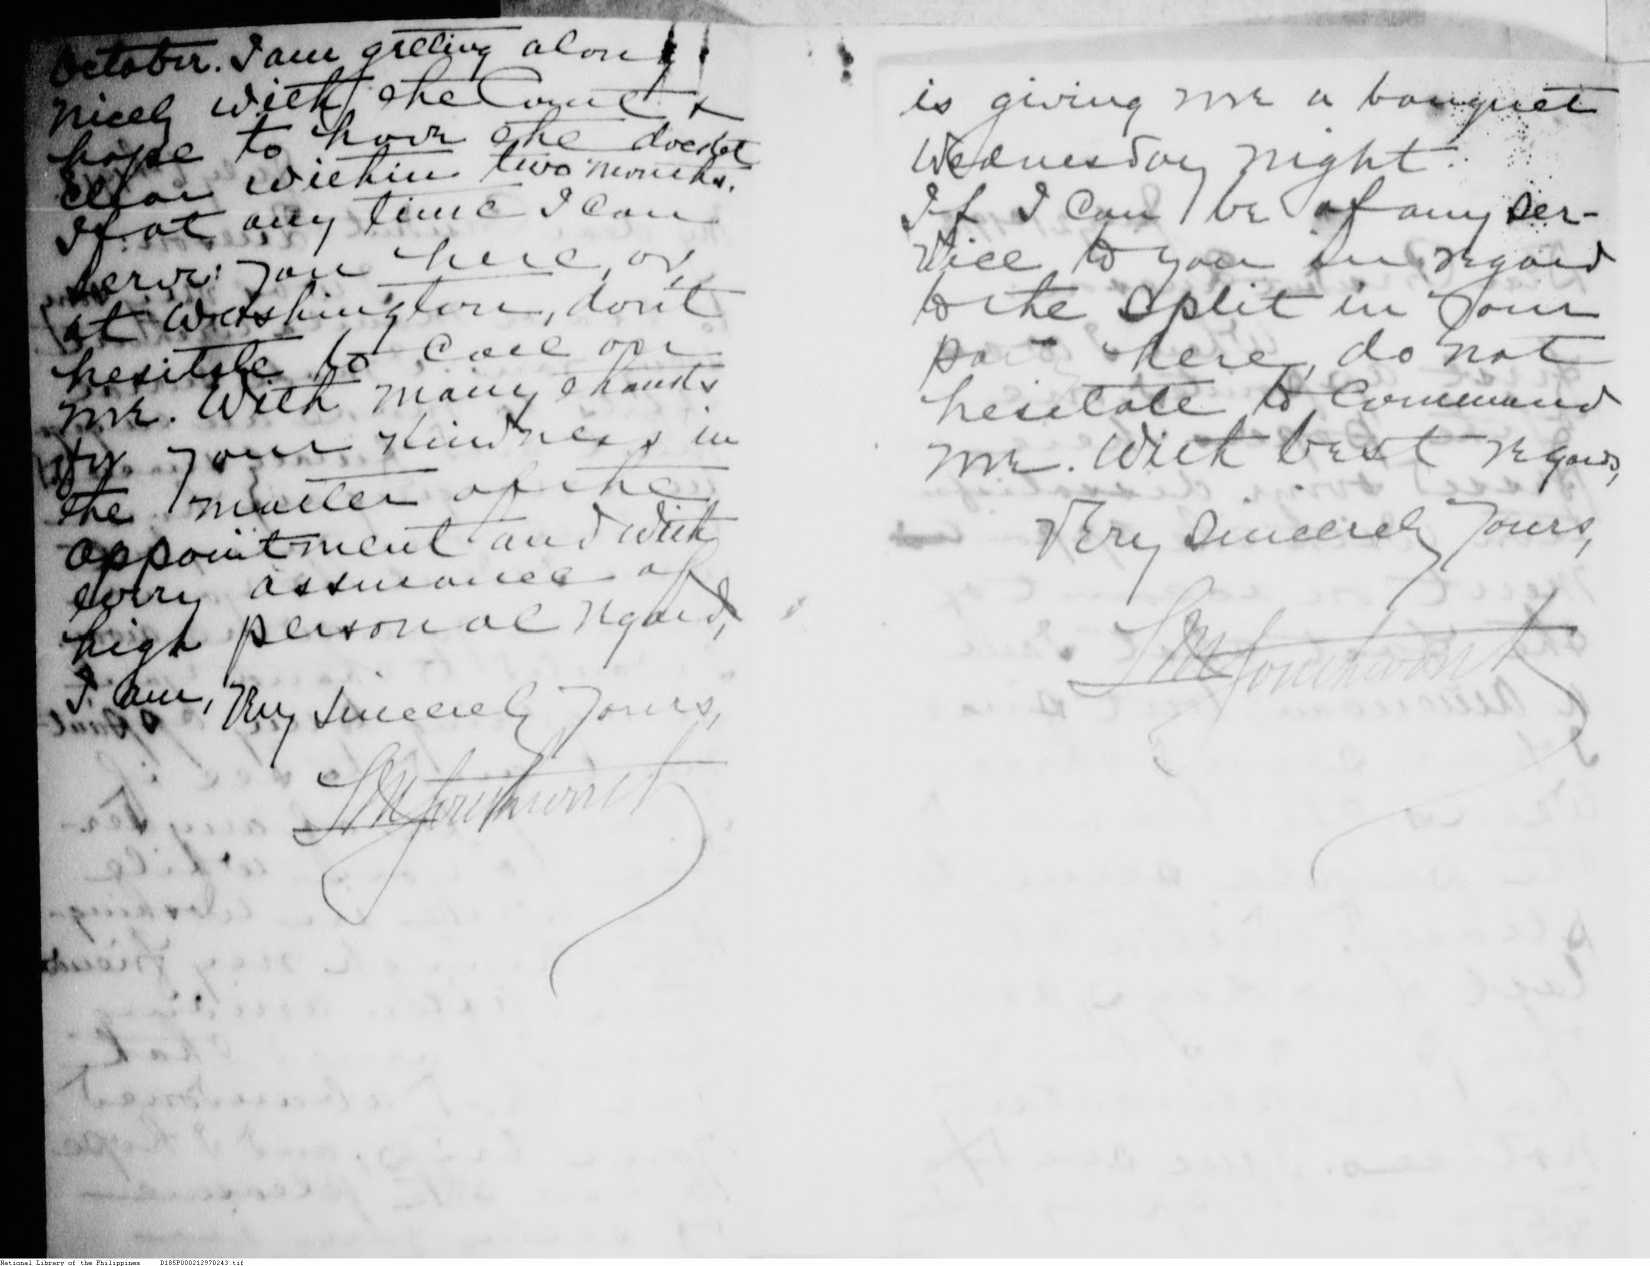 October. I am getting along
nicely with the Court &
hope to have the docket
clear within two months.
If at any time I can
serve you here, or,
at Washington, don't
hesitate to call on
me. With many thanks
for your kindness in
the matter of the
appointment and with
every assurance of
high personal regard,
I am, Very Sincerely Yours,
is giving me a banquet
Wednesday night.
If I can be of any ser-
vice to you in regard
to the split in your
party here, do not
hesitate to command
me. With best regards,
Very Sincerely Yours,
National Library of the Philippines D185P000212970243.tif